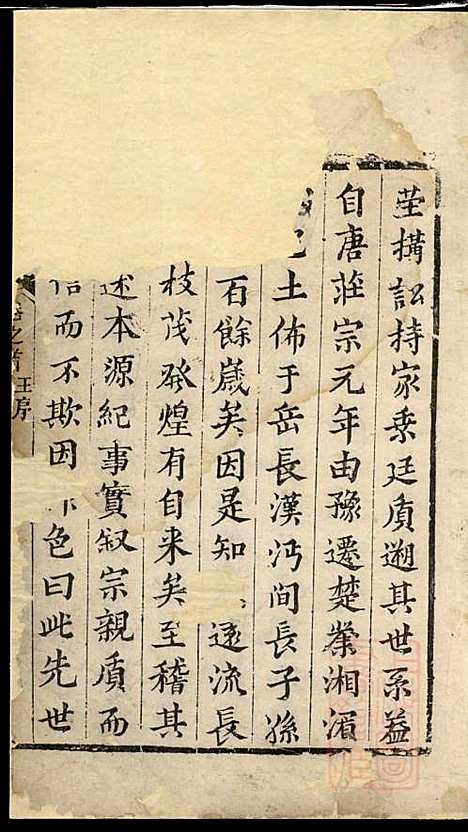 塋搆訟持家乗廷質遡其世系益
自唐莊宗元年由豫遷楚築湘湄
土佈于岳長漢沔間長子孫
百餘歲矣因是知遠流長
枝茂發煌有自来矣至稽其
述本源紀事實叙宗親質而
而不欺因色曰此先世
之首 王序